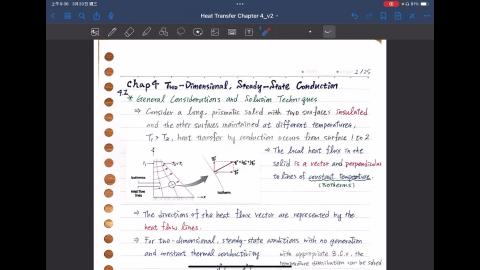 上午8:36 3月30日週三
81%
Heat Transfer Chapter 4_v2
2/25
Chap 4 Two-Dimensional, Steady-State Conduction
4.1
* General Considerations and Solution Techniques
⇒ Consider a long, prismatic solid with two surfaces insulated
and the other surfaces maintained at different temperatures,
T₁ > T₂, heat transfer by conduction occurs from surface 1 to 2
⇒ The local heat flux in the
solid is a vector and perpendicular
to lines of constant temperature
(isotherms)
y
Isotherms
Heat flow
lines
x
Isotherm
⇒ The directions of the heat flux vector are represented by the
heat flow lines.
⇒ For two-dimensional, steady-state conditions with no generation
and constant thermal conductivity
with appropriate B.C.s, the
temperature distribution can be solved